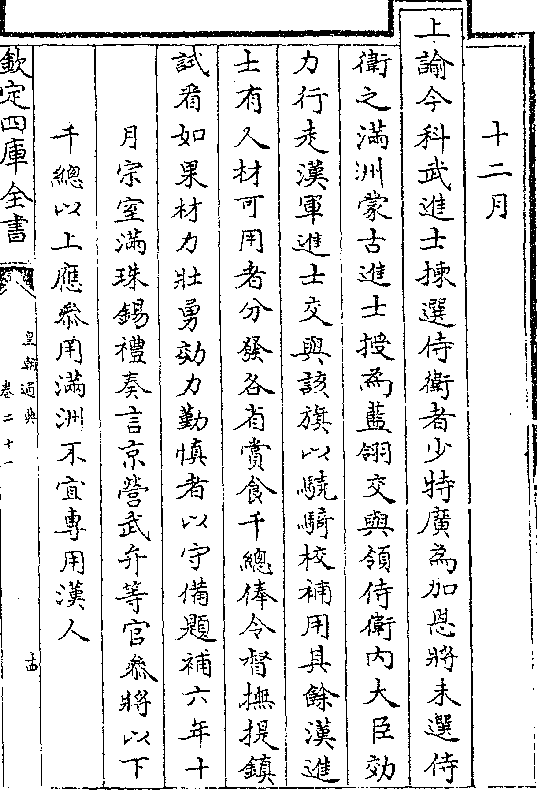 十二月
上諭今科武進士揀選侍衛者少特廣為加恩將未選侍
衛之滿洲蒙古進士授為藍翎交與領侍衛內大臣効
力行走漢軍進士交與該旗以驍騎校補用其餘漢進
士有人材可用者分發各省賞食千總俸令督撫提鎮
試看如果材力壯勇効力勤慎者以守備題補六年十
月宗室滿珠錫禮奏言京營武弁等官叅將以下
千總以上應叅用滿洲不宜專用漢人
欽定四庫全書
皇朝通典
卷二十一